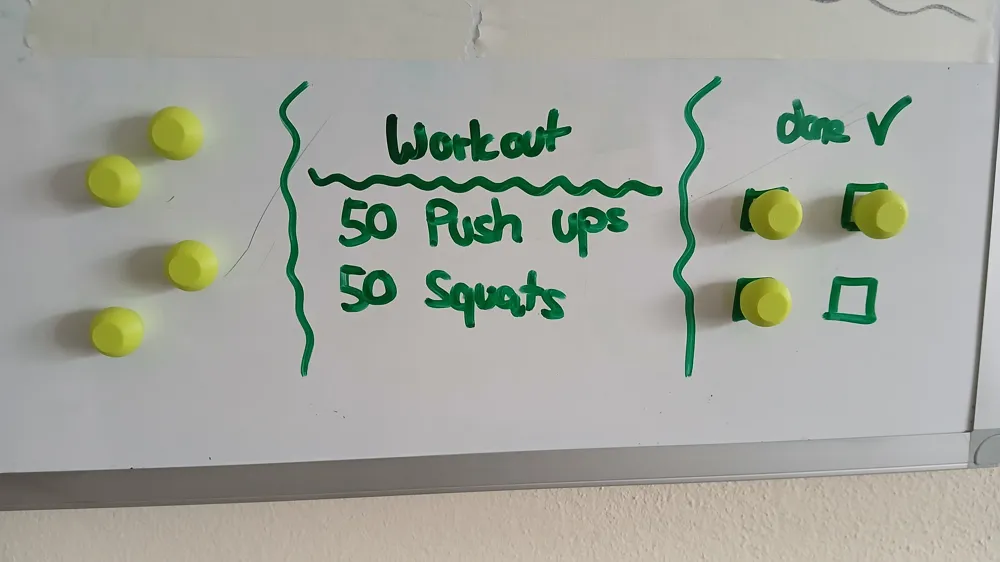 Workout
done ✓
50 Push ups
50 Squats